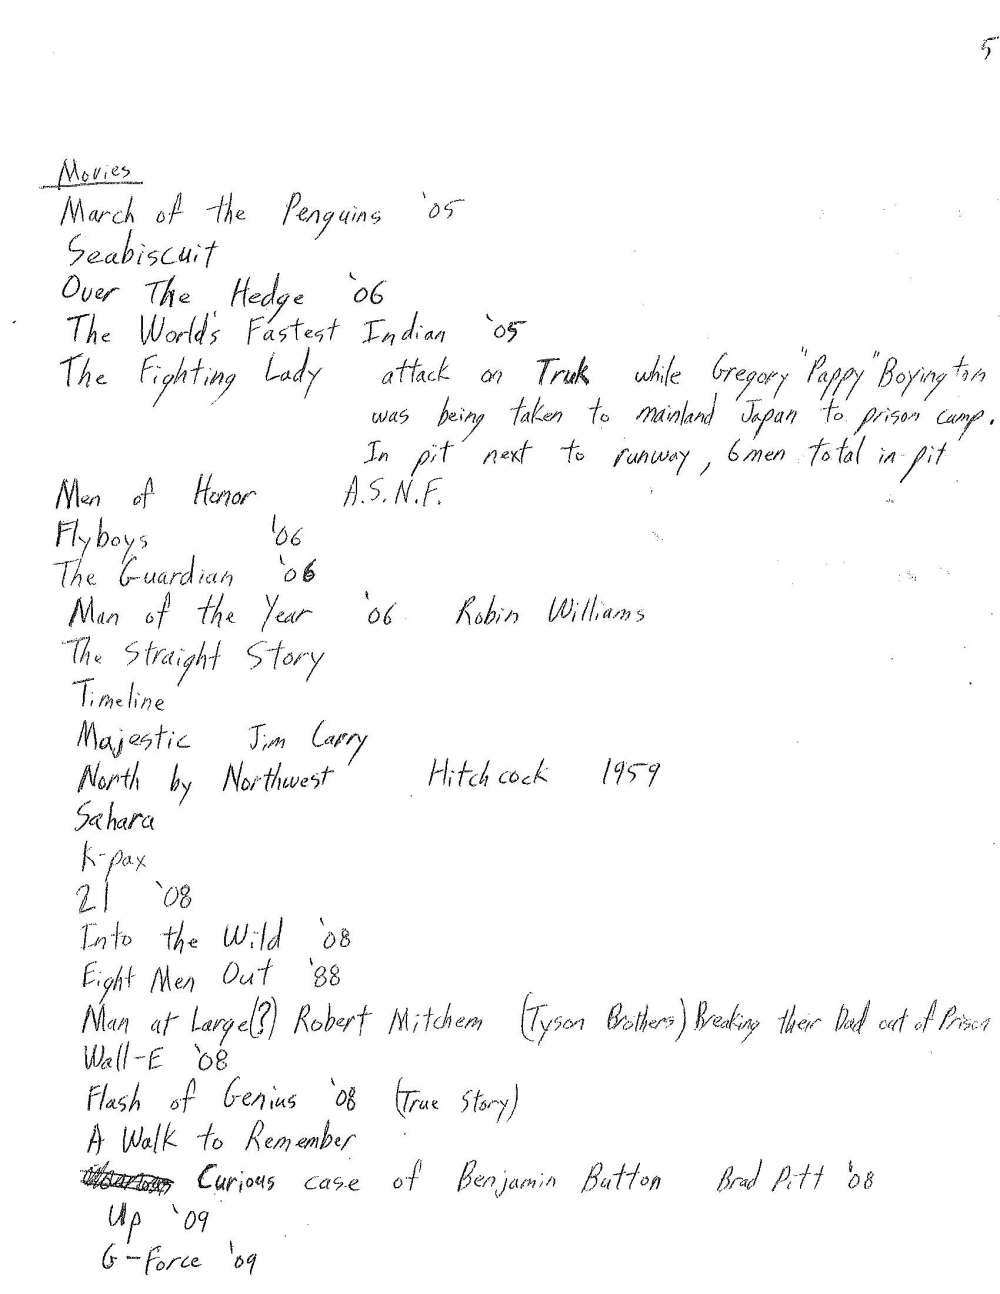 5
Movies
March of the Penguins '05
Seabiscuit
Over The Hedge '06
The World's Fastest Indian '05
The Fighting Lady attack on Truk while Gregory "Pappy" Boyington
was being taken to mainland Japan to prison camp.
In pit next to runway, 6 men total in pit
Men of Honor A.S.N.F.
Flyboys '06
The Guardian '06
Man of the Year '06 Robin Williams
The Straight Story
Timeline
Majestic Jim Carry
North by Northwest Hitchcock 1959
Sahara
K-pax
21 '08
Into the Wild '08
Eight Men Out '88
Man at Large(?) Robert Mitchem (Tyson Brothers) Breaking their Dad out of Prison
Wall-E '08
Flash of Genius '08 (True Story)
A Walk to Remember
Curious case of Benjamin Button Brad Pitt '08
Up '09
G-Force '09